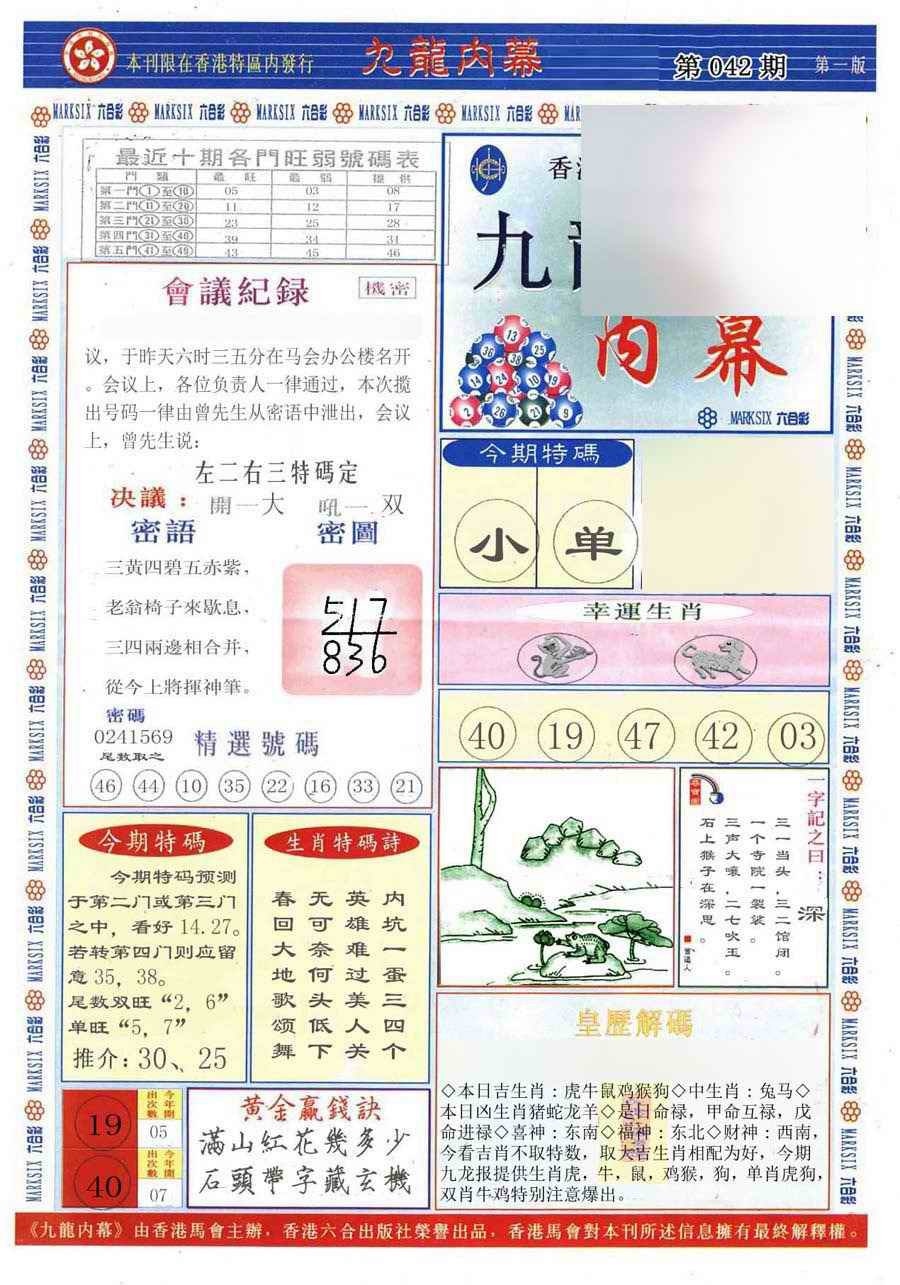 本刊限在香港特區内發行
九龍内幕
第 042 期
第一版
MARKSIX 六合彩 MARKSIX 六合彩 MARKSIX 六合彩 MARKSIX 六合彩 MARKSIX 六合彩
最近十期各門旺弱號碼表
門類 最旺 最弱 提供
第一門①至⑩ 05 03 08
第二門⑪至⑳ 11 12 17
第三門㉑至㉚ 23 25 28
第四門㉛至㊵ 39 34 31
第五門㊶至㊾ 43 45 46
九
内幕
13
36 38 25
14 24 10 19
2 26 21 9
MARKSIX 六合彩
會議紀録
機密
议，于昨天六时三五分在马会办公楼名开
。会议上，各位负责人一律通过，本次揽
出号码一律由曾先生从密语中泄出，会议
上，曾先生说：
左二右三特碼定
决議：開一大 吼一双
密語
密圖
三黄四碧五赤紫，
老翁椅子來歇息，
三四兩邊相合并，
從今上將揮神筆。
517
836
密碼
0241569
尾数取之
精選號碼
46 44 10 35 22 16 33 21
今期特碼
小 单
幸運生肖
40 19 47 42 03
一字記之曰：
深
三一当头，三二馆闭。
一个寺院一袈裟。
三声大嚷，二七吹玉。
石上猴子在深思。
今期特碼
今期特码预测
于第二门或第三门
之中，看好 14.27。
若转第四门则应留
意 35，38。
尾数双旺“2，6”
单旺“5，7”
推介：30、25
生肖特碼詩
春无英内
回可雄坑
大奈难一
地何过蛋
歌头美三
颂低人四
舞下关个
19
今年開出次數
05
40
今年開出次數
07
黄金赢錢訣
滿山紅花幾多少
石頭帶字藏玄機
皇歷解碼
◇本日吉生肖：虎牛鼠鸡猴狗◇中生肖：兔马◇
本日凶生肖猪蛇龙羊◇是日命禄，甲命互禄，戊
命进禄◇喜神：东南◇福神：东北◇财神：西南，
今看吉肖不取特数，取大吉生肖相配为好，今期
九龙报提供生肖虎，牛，鼠，鸡猴，狗，单肖虎狗，
双肖牛鸡特别注意爆出。
《九龍内幕》由香港馬會主辦，香港六合出版社榮譽出品，香港馬會對本刊所述信息擁有最終解釋權。